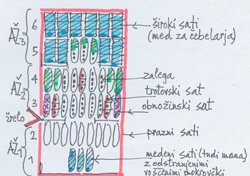 AŽ3
AŽ2
AŽ1
6
5
4
3
2
1
žrelo
široki sati
(med za čebelarja)
zalega
trotovski sat
obnožinski sat
prazni sati
medeni sati (tudi mana)
z odstranjenimi
voščenimi pokrovčki